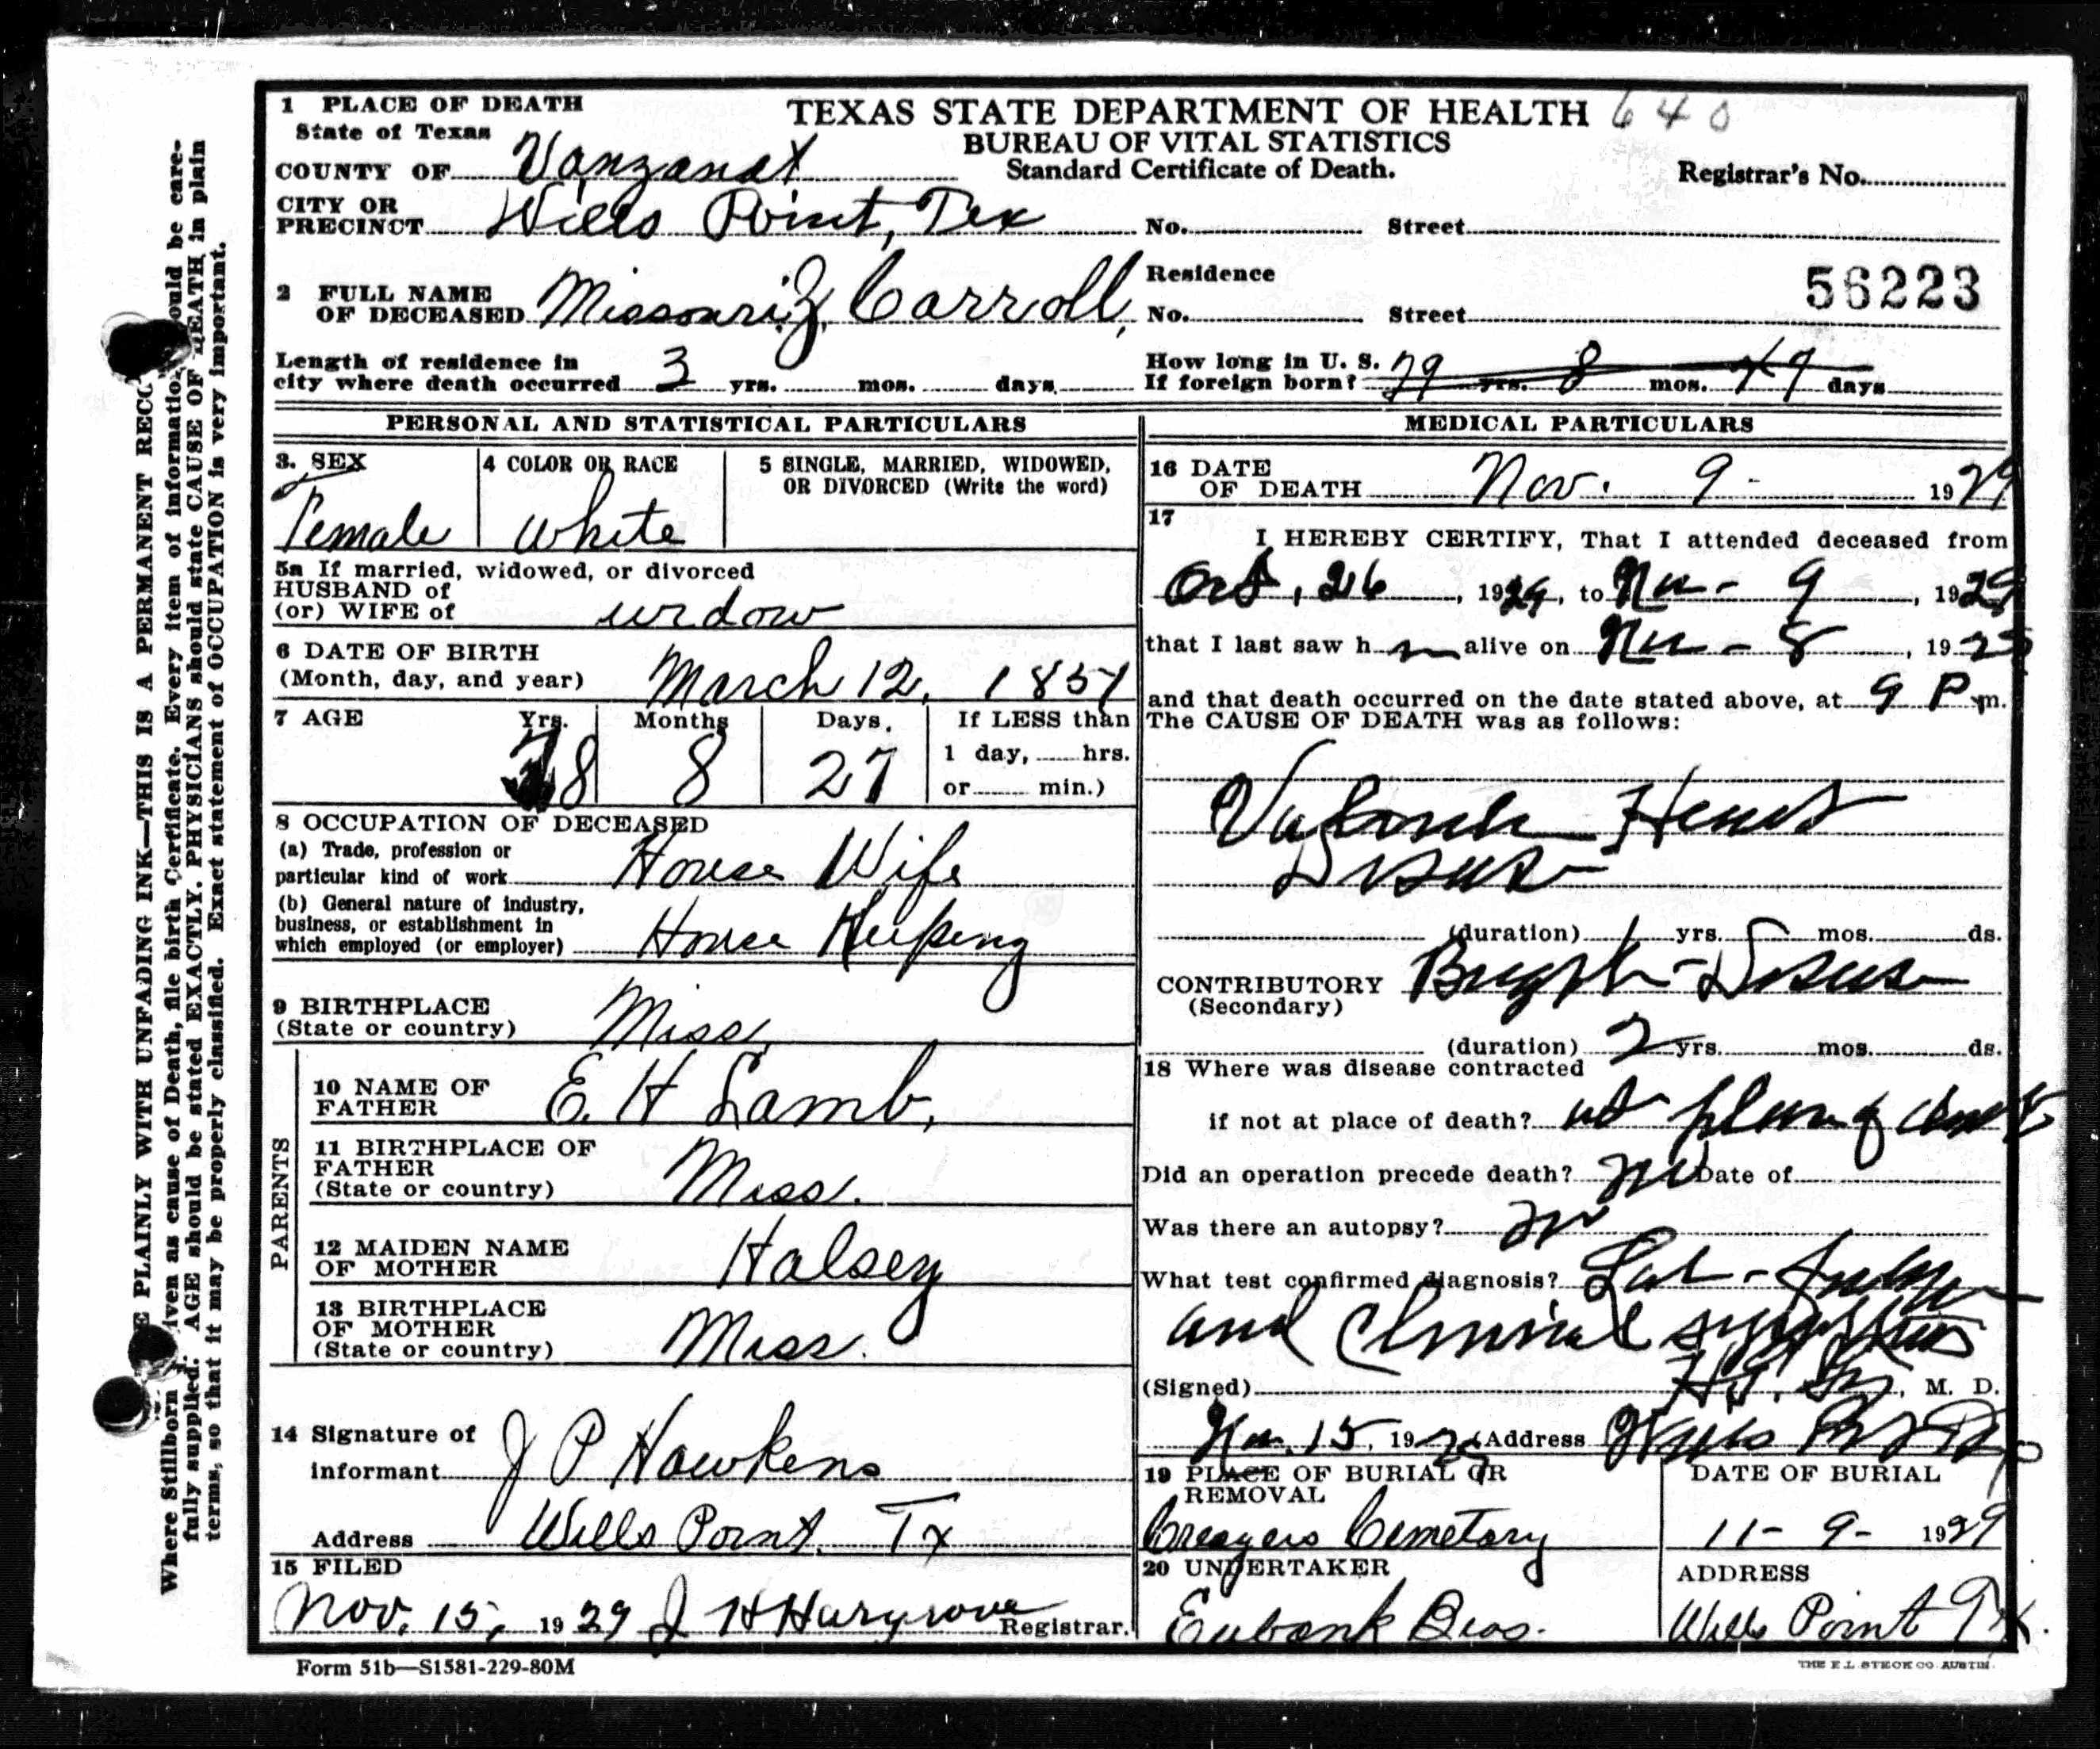 1 PLACE OF DEATH
State of Texas
COUNTY OF Vanzandt
CITY OR
PRECINCT Wills Point, Tex
TEXAS STATE DEPARTMENT OF HEALTH 640
BUREAU OF VITAL STATISTICS
Standard Certificate of Death.
Registrar's No.
No. Street
2 FULL NAME
OF DECEASED Missouri Z. Carroll,
Residence
No. Street
56223
Length of residence in
city where death occurred 3 yrs. mos. days
How long in U. S.
If foreign born? 79 yrs. 8 mos. days
PERSONAL AND STATISTICAL PARTICULARS
3. SEX
Female
4 COLOR OR RACE
White
5 SINGLE, MARRIED, WIDOWED,
OR DIVORCED (Write the word)
5a If married, widowed, or divorced
HUSBAND of
(or) WIFE of widow
6 DATE OF BIRTH
(Month, day, and year) March 12, 1851
7 AGE Yrs. Months Days. If LESS than
1 day, hrs.
or min.)
78 8 27
8 OCCUPATION OF DECEASED
(a) Trade, profession or
particular kind of work House Wife
(b) General nature of industry,
business, or establishment in
which employed (or employer) House Keeping
9 BIRTHPLACE
(State or country) Miss.
PARENTS
10 NAME OF
FATHER E. H Lamb,
11 BIRTHPLACE OF
FATHER
(State or country) Miss.
12 MAIDEN NAME
OF MOTHER Halsey
13 BIRTHPLACE
OF MOTHER
(State or country) Miss.
14 Signature of
informant J P Hawkens
Address Wills Point, Tx
15 FILED
Nov. 15, 1929 J H Hargrove Registrar.
MEDICAL PARTICULARS
16 DATE
OF DEATH Nov. 9 - 1929
17
I HEREBY CERTIFY, That I attended deceased from
Oct, 26, 1929, to Nov - 9, 1929
that I last saw h alive on Nov - 8, 19
and that death occurred on the date stated above, at 9 P m.
The CAUSE OF DEATH was as follows:
Valvular Heart
Disease
(duration) 1 yrs. mos. ds.
CONTRIBUTORY Bright Disease
(Secondary)
(duration) 2 yrs. mos. ds.
18 Where was disease contracted
if not at place of death? at place of death
Did an operation precede death? no Date of
Was there an autopsy? no
What test confirmed diagnosis? Lab -
and Clinical symptoms
(Signed) , M. D.
Nov. 15, 1929 Address Wills Point
19 PLACE OF BURIAL OR
REMOVAL
Creagers Cemetary
DATE OF BURIAL
11 - 9 - 1929
20 UNDERTAKER
Eubank Bros.
ADDRESS
Wills Point Tx.
Form 51b—S1581-229-80M
THE E.L. STECK CO. AUSTIN.
E PLAINLY WITH UNFADING INK—THIS IS A PERMANENT RECO
Where Stillborn iven as cause of Death, file birth Certificate. Every item of information should be care-
fully supplied. AGE should be stated EXACTLY. PHYSICIANS should state CAUSE OF DEATH in plain
terms, so that it may be properly classified. Exact statement of OCCUPATION is very important.